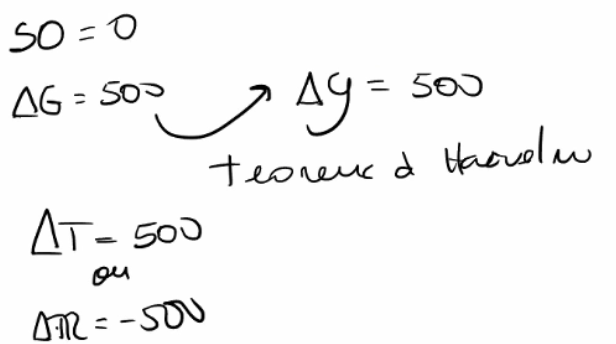 SO = 0
ΔG = 500 → Δy = 500
teorema d Haavelmo
ΔT = 500
ou
ΔTR = -500